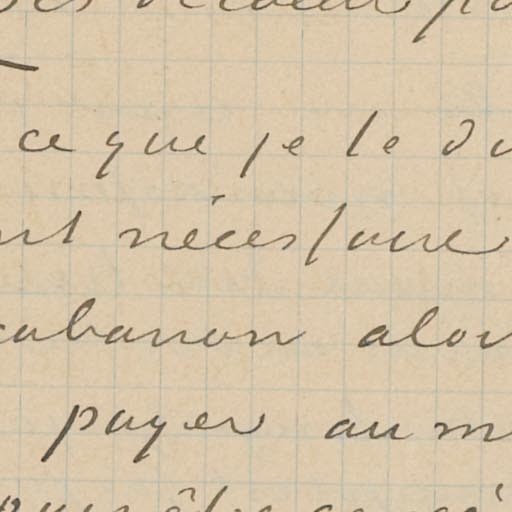 ce que je te di
nécessaire
cabanon alor
payer au m
être